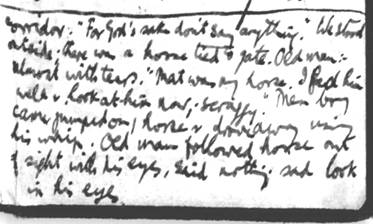 corridor. "For God's sake don't say anything." We stood
outside. there was a horse tied to gate. Old man:-
almost with tears. "That was my horse. I feed him
well & look at him now, - scraggy." Then boy
came jumped on / horse & drove away using
his whip. Old man followed horse out
of sight with his eyes, said nothing. sad look
in his eyes